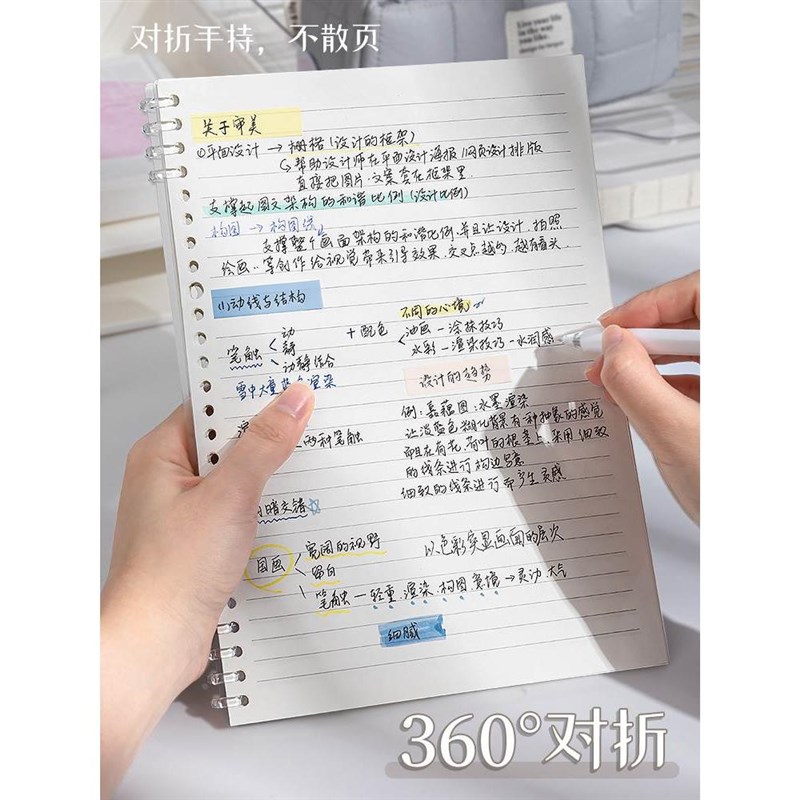 对折手持，不散页
Live your life
in the way
you like.
关于审美
①平面设计 → 栅格（设计的框架）
↳ 帮助设计师在平面设计海报 / 网页设计排版
直接把图片·文案套在框架里
支撑起图文架构的和谐比例（设计比例）
构图 → 构图线
支撑整个画面架构的和谐比例，并且让设计、拍照
绘画..等创作给视觉带来引导效果，交叉点越的，越有看头.
⑴动线与结构
不同的心境
笔触 < 动
静
动静结合
+ 配色 < 油画 — 涂抹技巧
水彩 — 渲染技巧 — 水润感
雪中大量蓝色渲染
设计的趋势
两种笔触
例：嘉藕图：水墨渲染
让淡蓝色
有种抽象的感觉
而且在荷花，荷叶的根茎上采用细致
的线条进行构边
细致的线条进行
产生灵感
暗交错
国画 < 宽阔的视野
留白
笔触 — 轻重、渲染、构图 意境 → 灵动、大气
以色彩突显画面的层次
细腻
360°对折